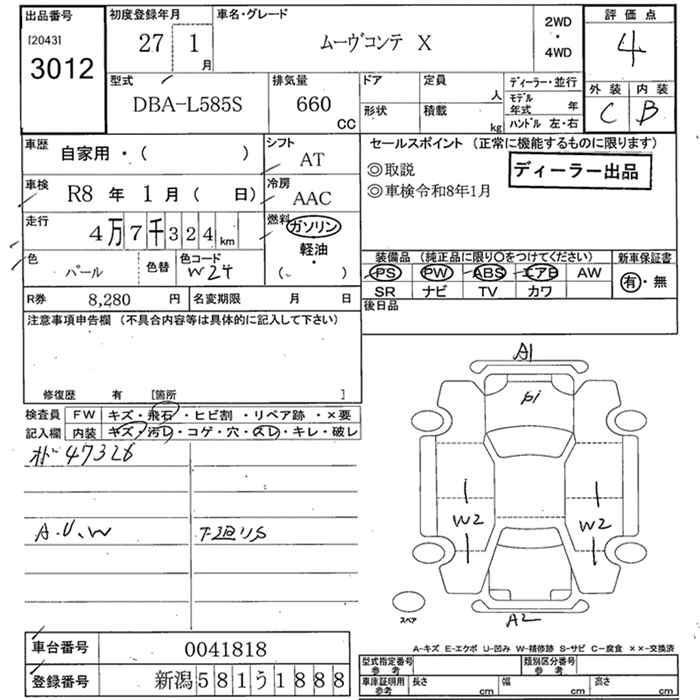 出品番号
[2043]
3012
初度登録年月
27 1 月
車名・グレード
ムーヴコンテ X
2WD
・
4WD
評価点
4
外装 内装
C B
型式
DBA-L585S
排気量
660 CC
ドア
形状
定員 人
積載 kg
ディーラー・並行
モデル年式 年
ハンドル 左・右
車歴
自家用・( )
シフト
AT
車検
R8 年 1 月 ( 日)
冷房
AAC
走行
4万7千324 km
燃料
ガソリン
軽油
・
( )
色
パール
色替
色コード
W24
R券 8,280 円
名変期限 月 日
セールスポイント (正常に機能するものに限ります)
◎取説
◎車検令和8年1月
ディーラー出品
装備品 (純正品に限り○をつけてください)
PS PW ABS エアB AW
SR ナビ TV カワ
新車保証書
有・無
後日品
注意事項申告欄 (不具合内容等は具体的に記入して下さい)
修復歴 有 [箇所 ]
検査員
記入欄
FW キズ・飛石・ヒビ割・リペア跡・×要
内装 キズ・汚レ・コゲ・穴・スレ・キレ・破レ
オド 47326
A.U.W
下廻リS
A1
Pi
W2
W2
A2
スペア
A-キズ E-エクボ U-凹み W-補修跡 S-サビ C-腐食 ××-交換済
車台番号 0041818
登録番号 新潟581う1888
型式指定番号
参考
類別区分番号
参考
車庫証明用
参考
長さ cm
幅 cm
高さ cm